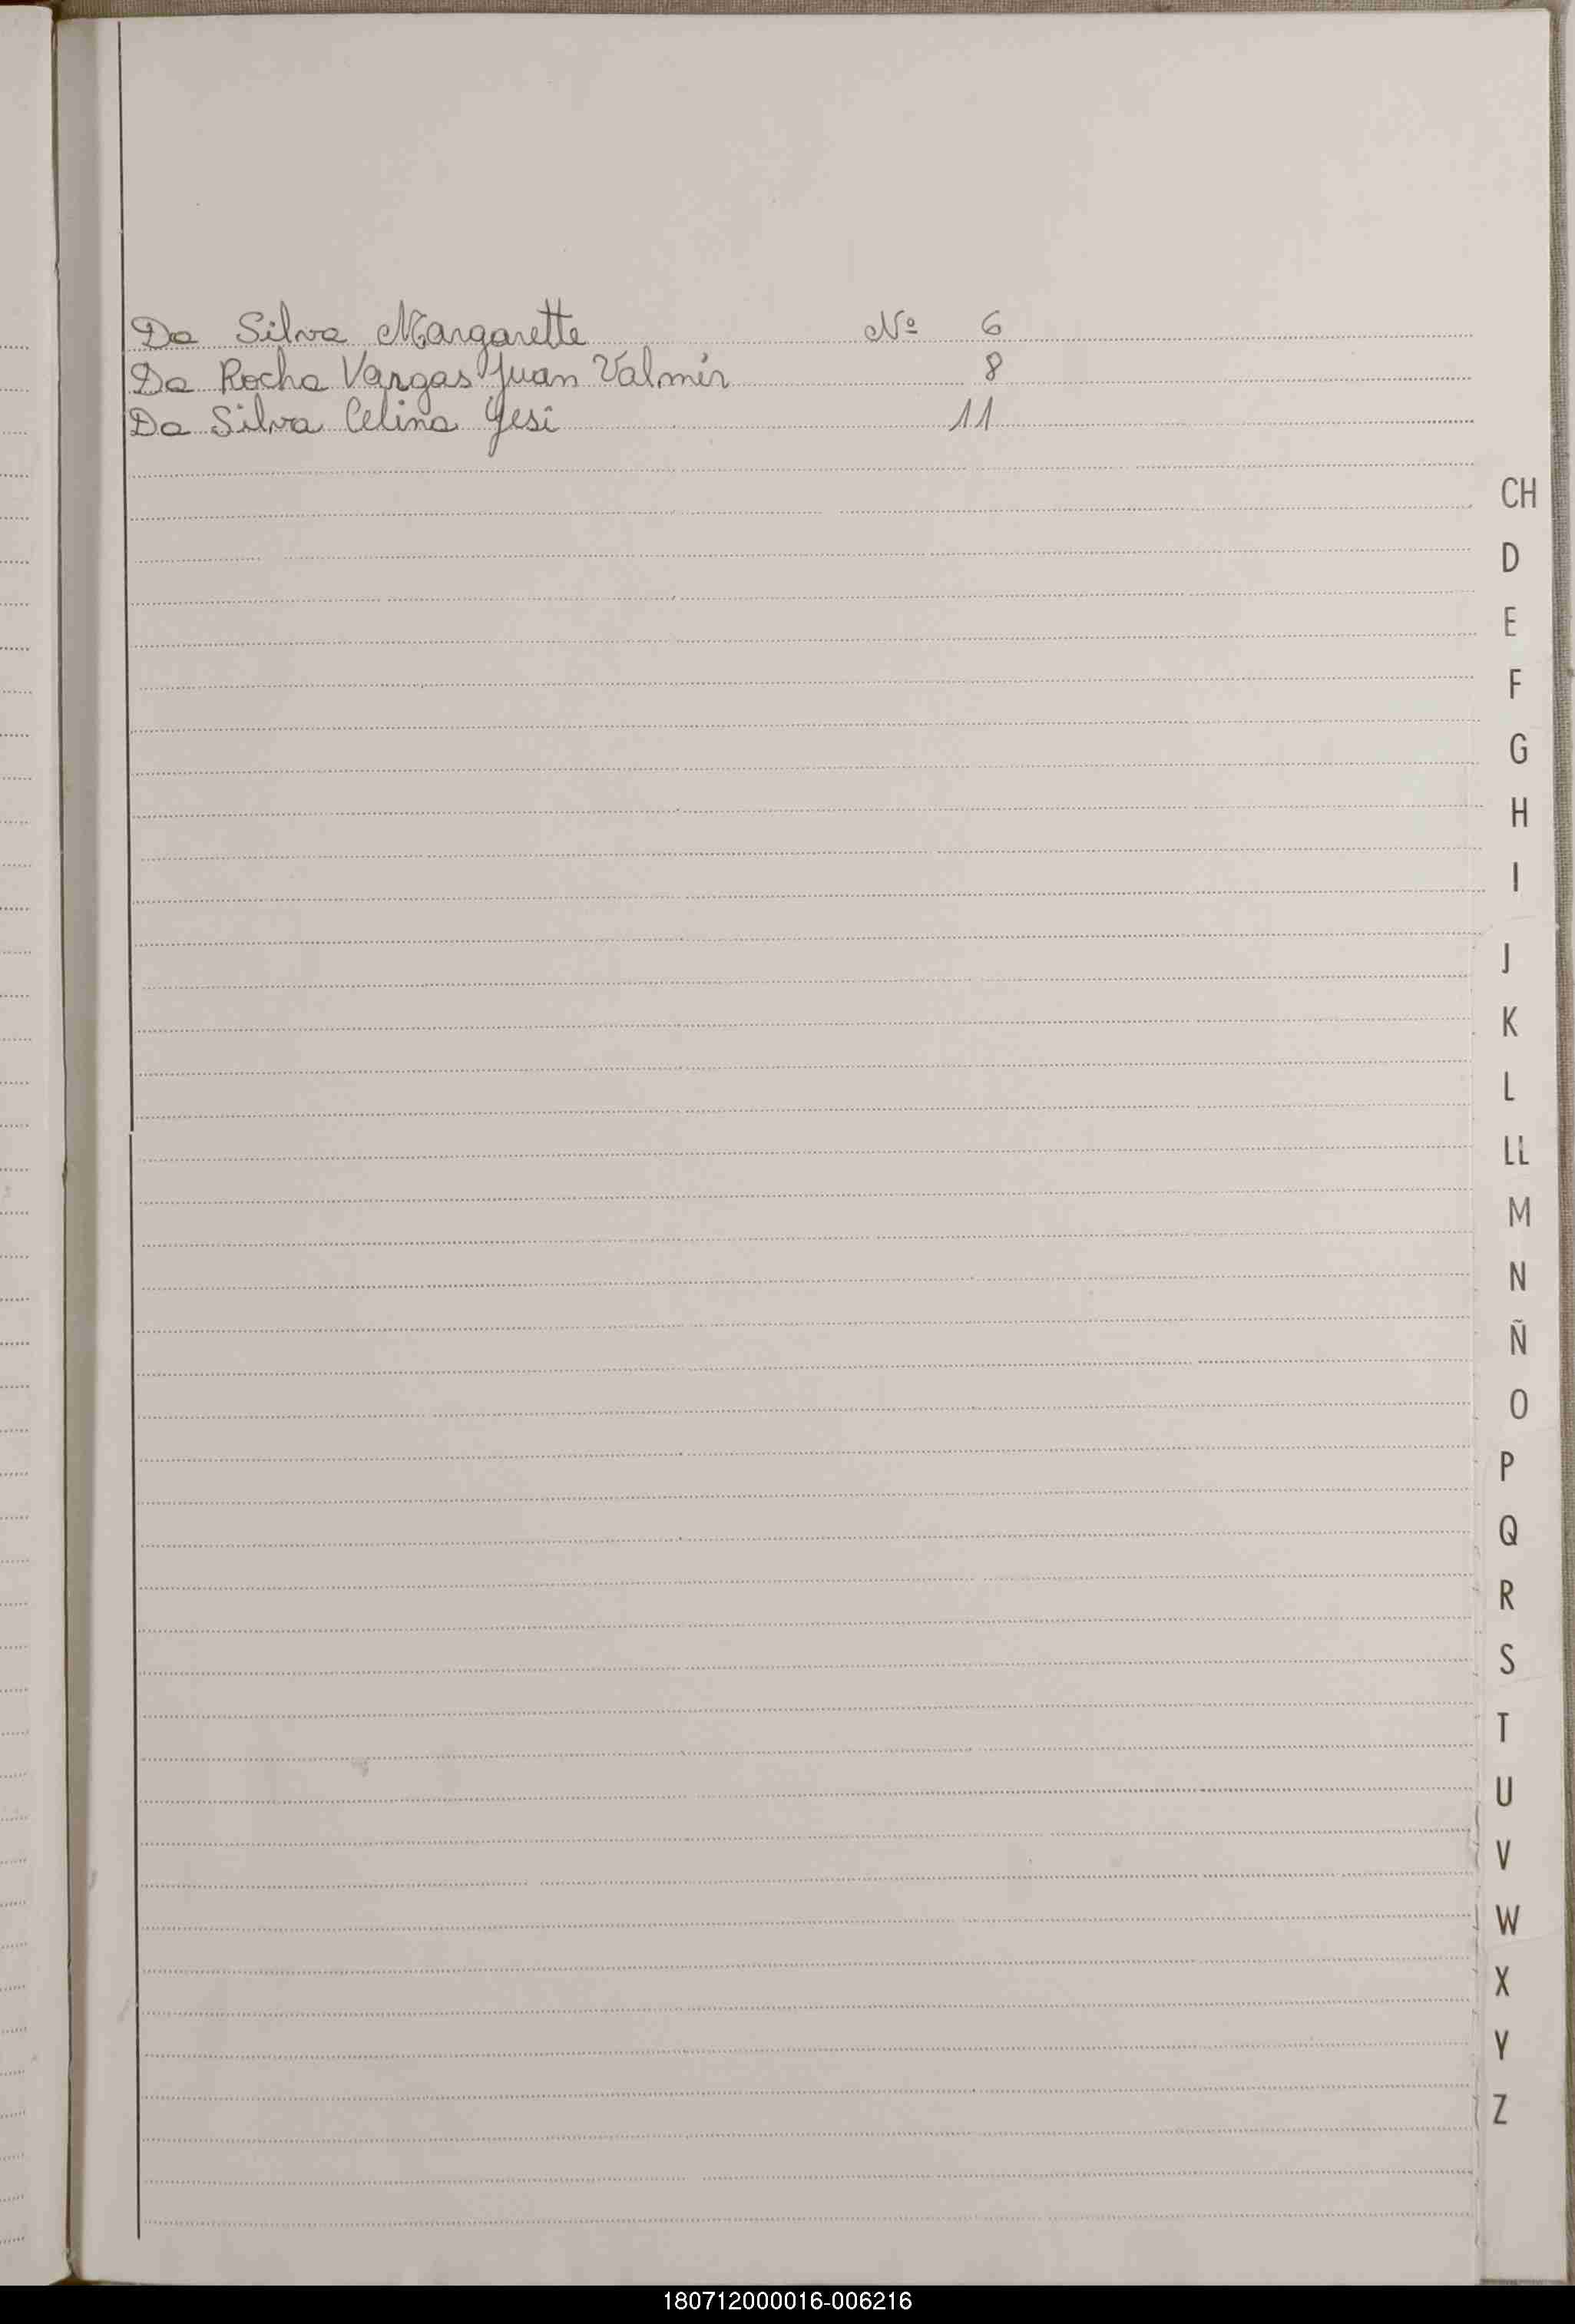 Da Silva Margarette Nº 6
Da Rocha Vargas Juan Valmir 8
Da Silva Celina Yesi 11
CH
D
E
F
G
H
I
J
K
L
LL
M
N
Ñ
O
P
Q
R
S
T
U
V
W
X
Y
Z
180712000016-006216